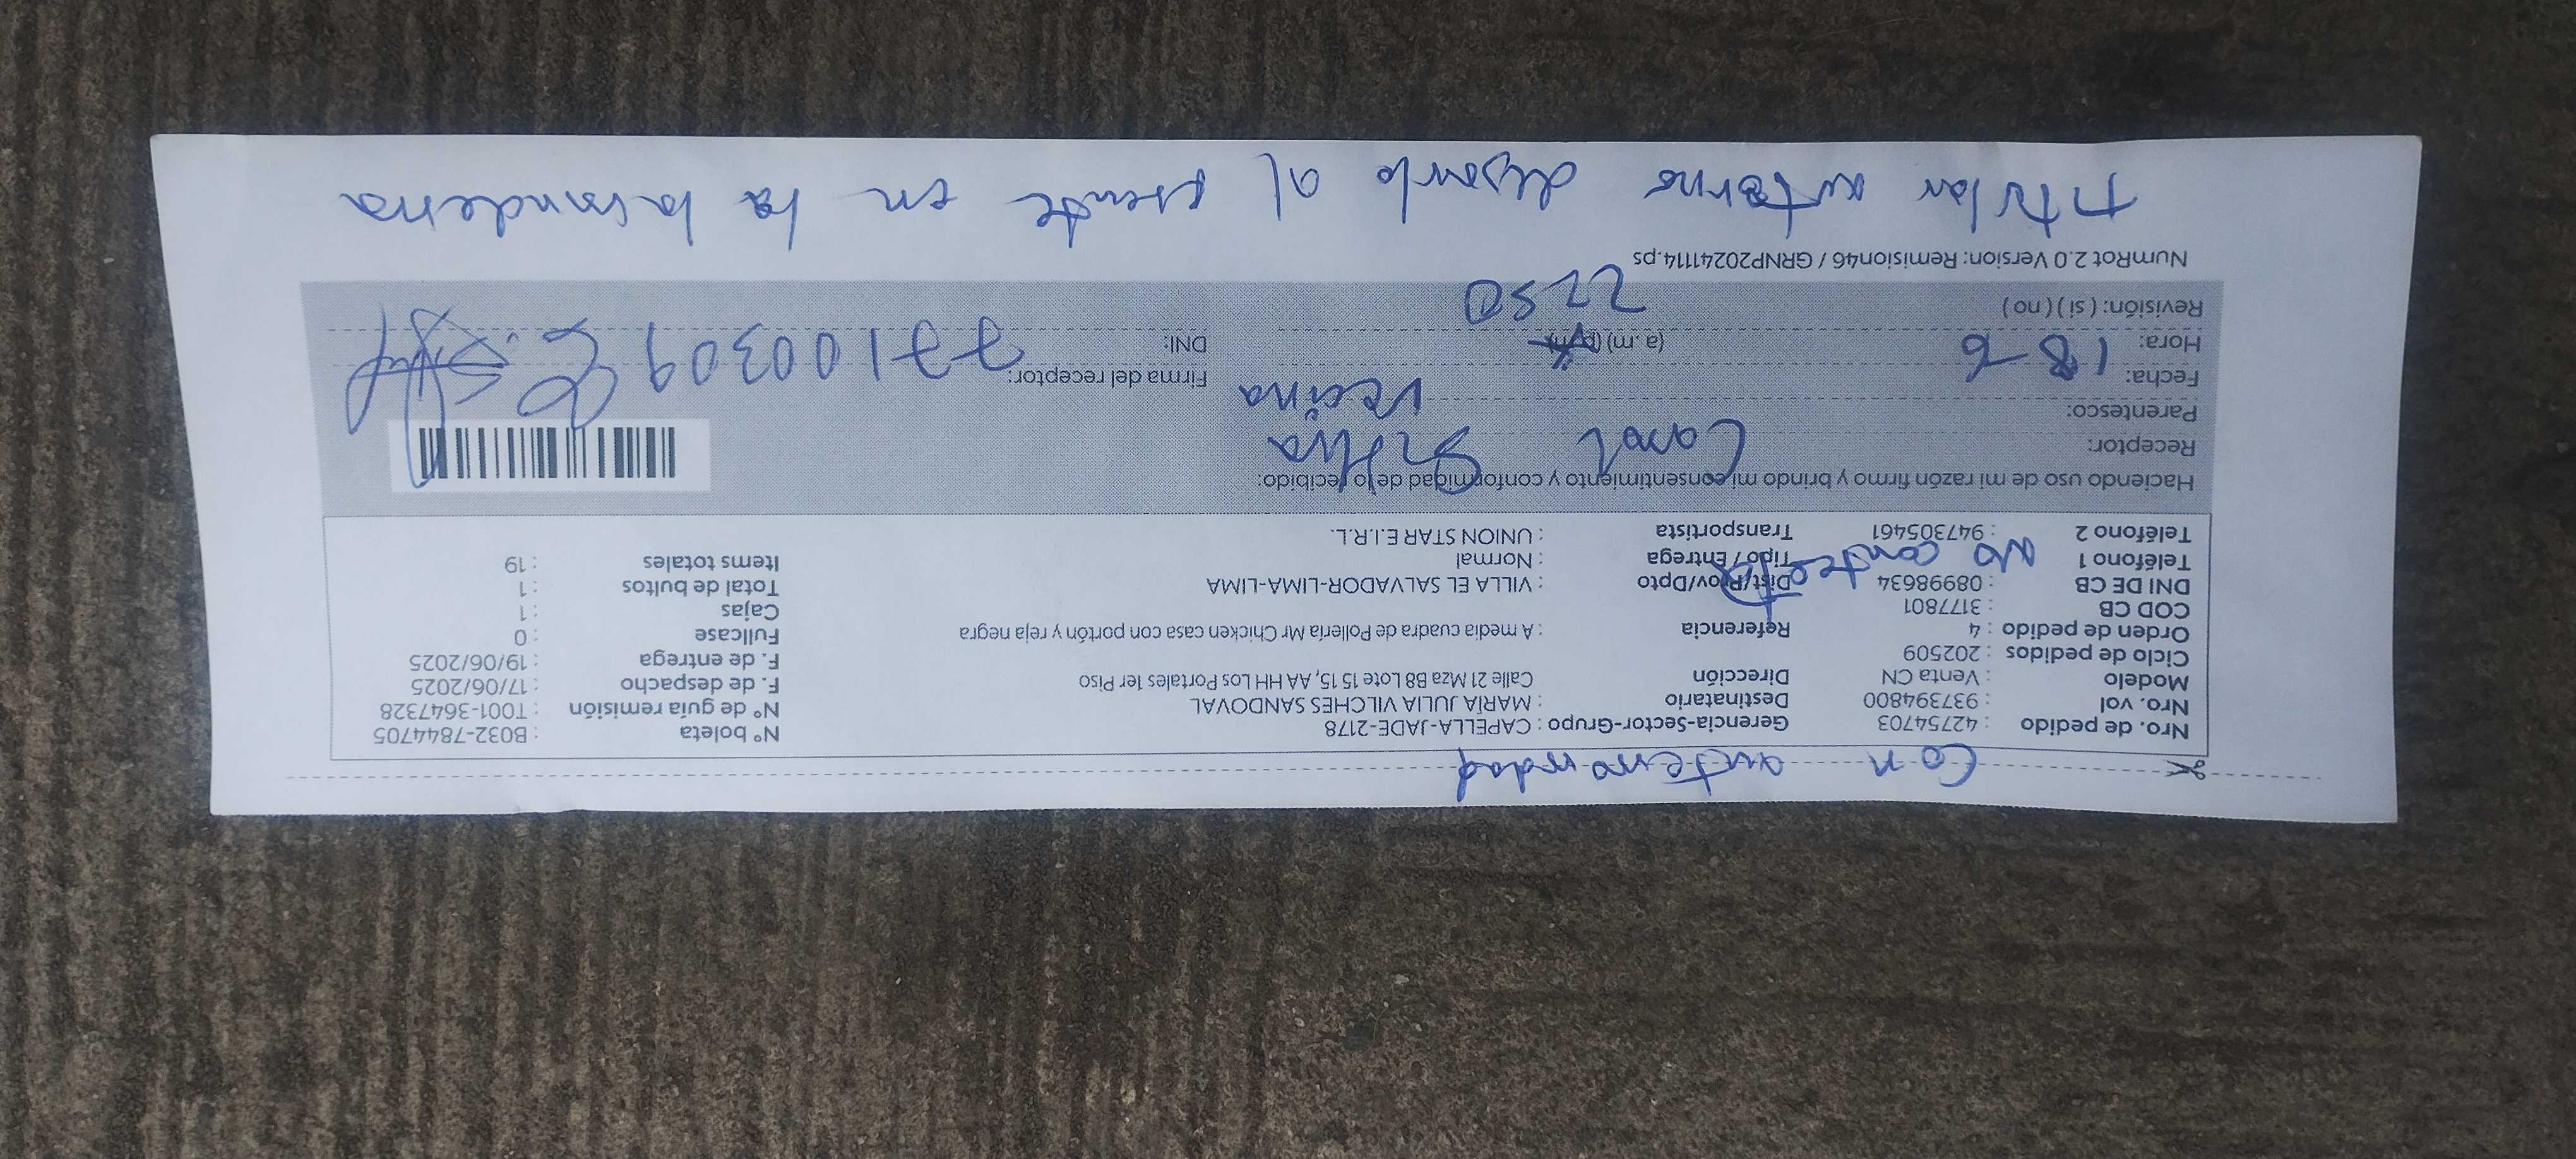 Con anterioridad
Nro. de pedido : 42754703 Gerencia-Sector-Grupo : CAPELLA-JADE-2178 N° boleta : B032-7844705
Nro. vol : 937394800 Destinatario : MARÍA JULIA VILCHES SANDOVAL N° de guía remisión : T001-3647328
Modelo : Venta CN Dirección Calle 21 Mza B8 Lote 15 15, AA HH Los Portales 1er Piso F. de despacho : 17/06/2025
Ciclo de pedidos : 202509 F. de entrega : 19/06/2025
Orden de pedido : 4 Referencia : A media cuadra de Pollería Mr Chicken casa con portón y reja negra Fullcase : 0
COD CB : 3177801 Cajas : 1
DNI DE CB : 08998634 Dist/Prov/Dpto : VILLA EL SALVADOR-LIMA-LIMA Total de bultos : 1
Teléfono 1 No contesta Tipo / Entrega : Normal Items totales : 19
Teléfono 2 : 947305461 Transportista : UNION STAR E.I.R.L.
Haciendo uso de mi razón firmo y brindo mi consentimiento y conformidad de lo recibido:
Receptor: Carol
Parentesco: Vecina
Fecha: 18-6 Firma del receptor:
Hora: (a.m) (p.m) DNI: 77100309
Revisión: ( si ) ( no ) 2250
NumRot 2.0 Version: Remision46 / GRNP20241114.ps
titular dejarlo al frente en la lavanderia